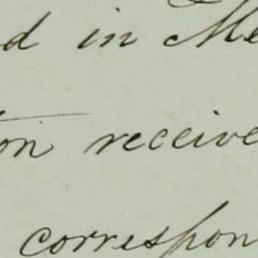 d in Me
on receive
correspon